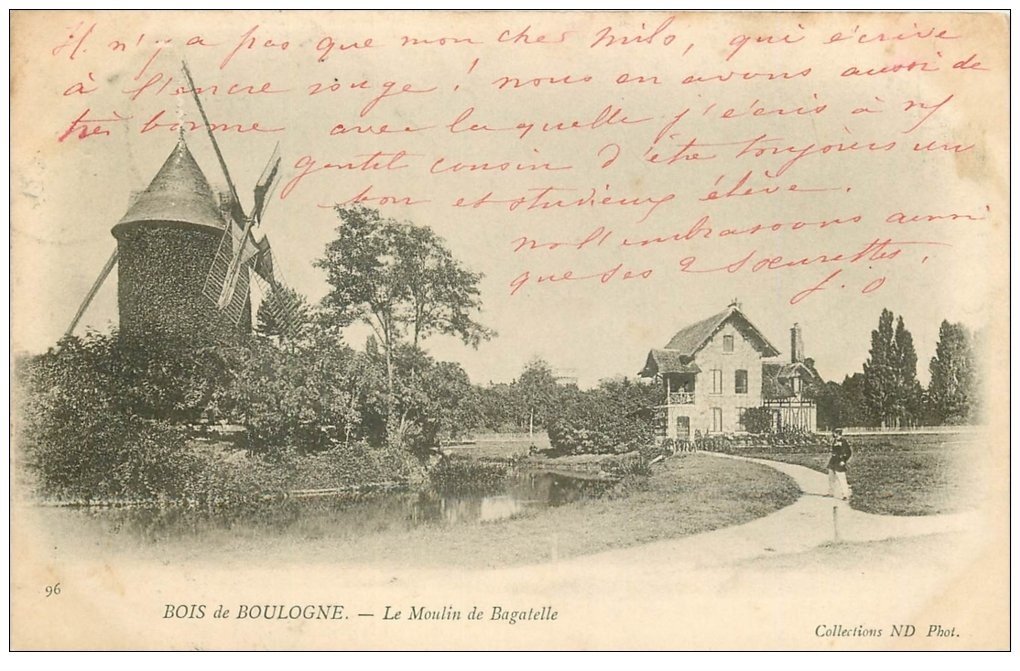 Il n'y a pas que mon cher Milo, qui écrive
à l'encre rouge ! nous en avons aussi de
très bonne avec laquelle j'écris à
gentil cousin d'être toujours un
bon et studieux élève.
l'embrassons ainsi
que ses 2 sœurettes.
96
BOIS de BOULOGNE. — Le Moulin de Bagatelle
Collections ND Phot.